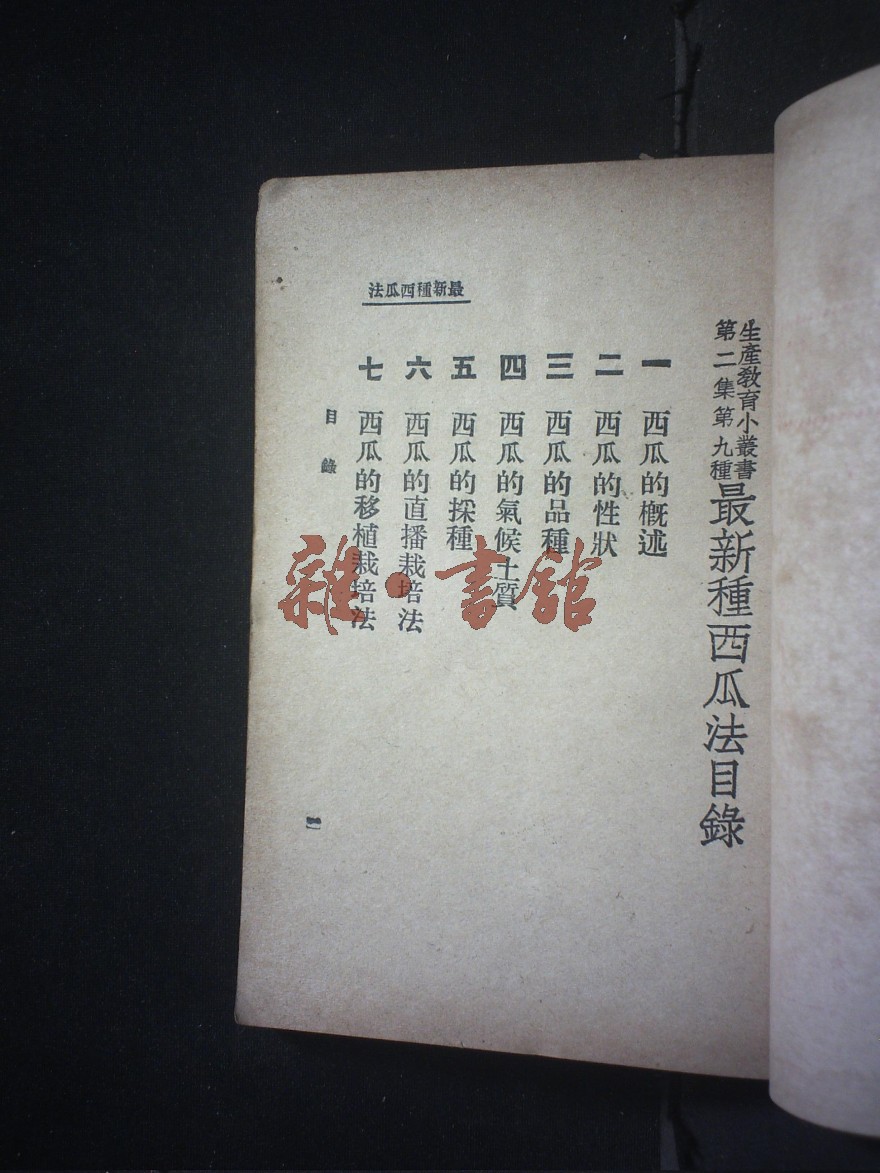 生產教育小叢書
第二集第九種
最新種西瓜法目錄
一 西瓜的概述
二 西瓜的性狀
三 西瓜的品種
四 西瓜的氣候土質
五 西瓜的採種
六 西瓜的直播栽培法
七 西瓜的移植栽培法
最新種西瓜法
目錄
一
雜·書館